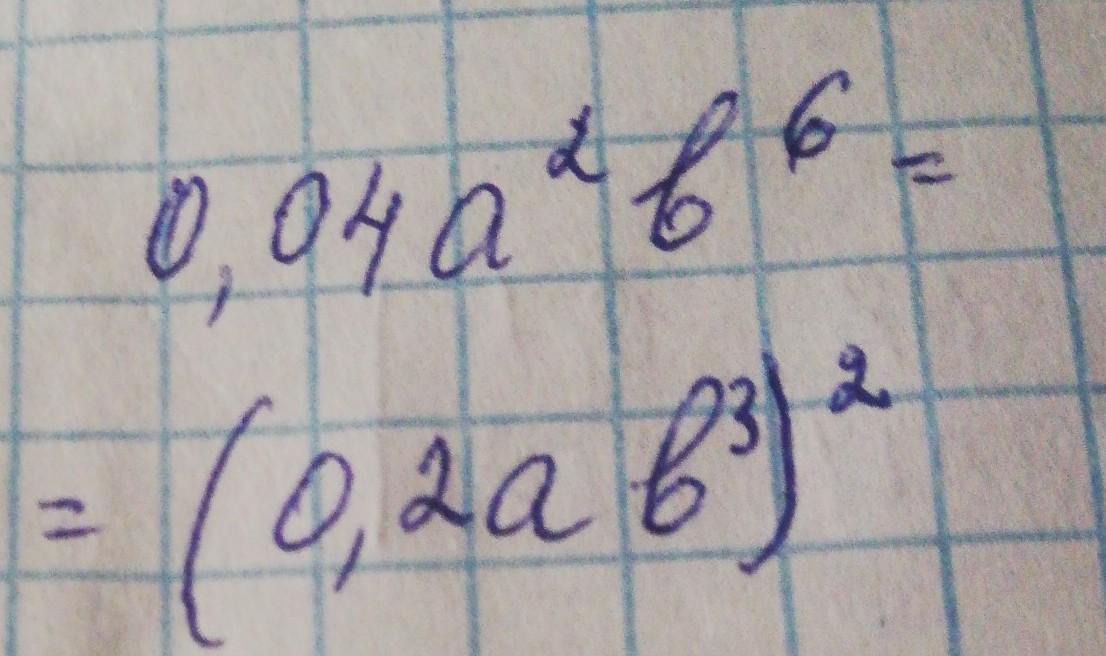 0,04a²b⁶=
=(0,2ab³)²